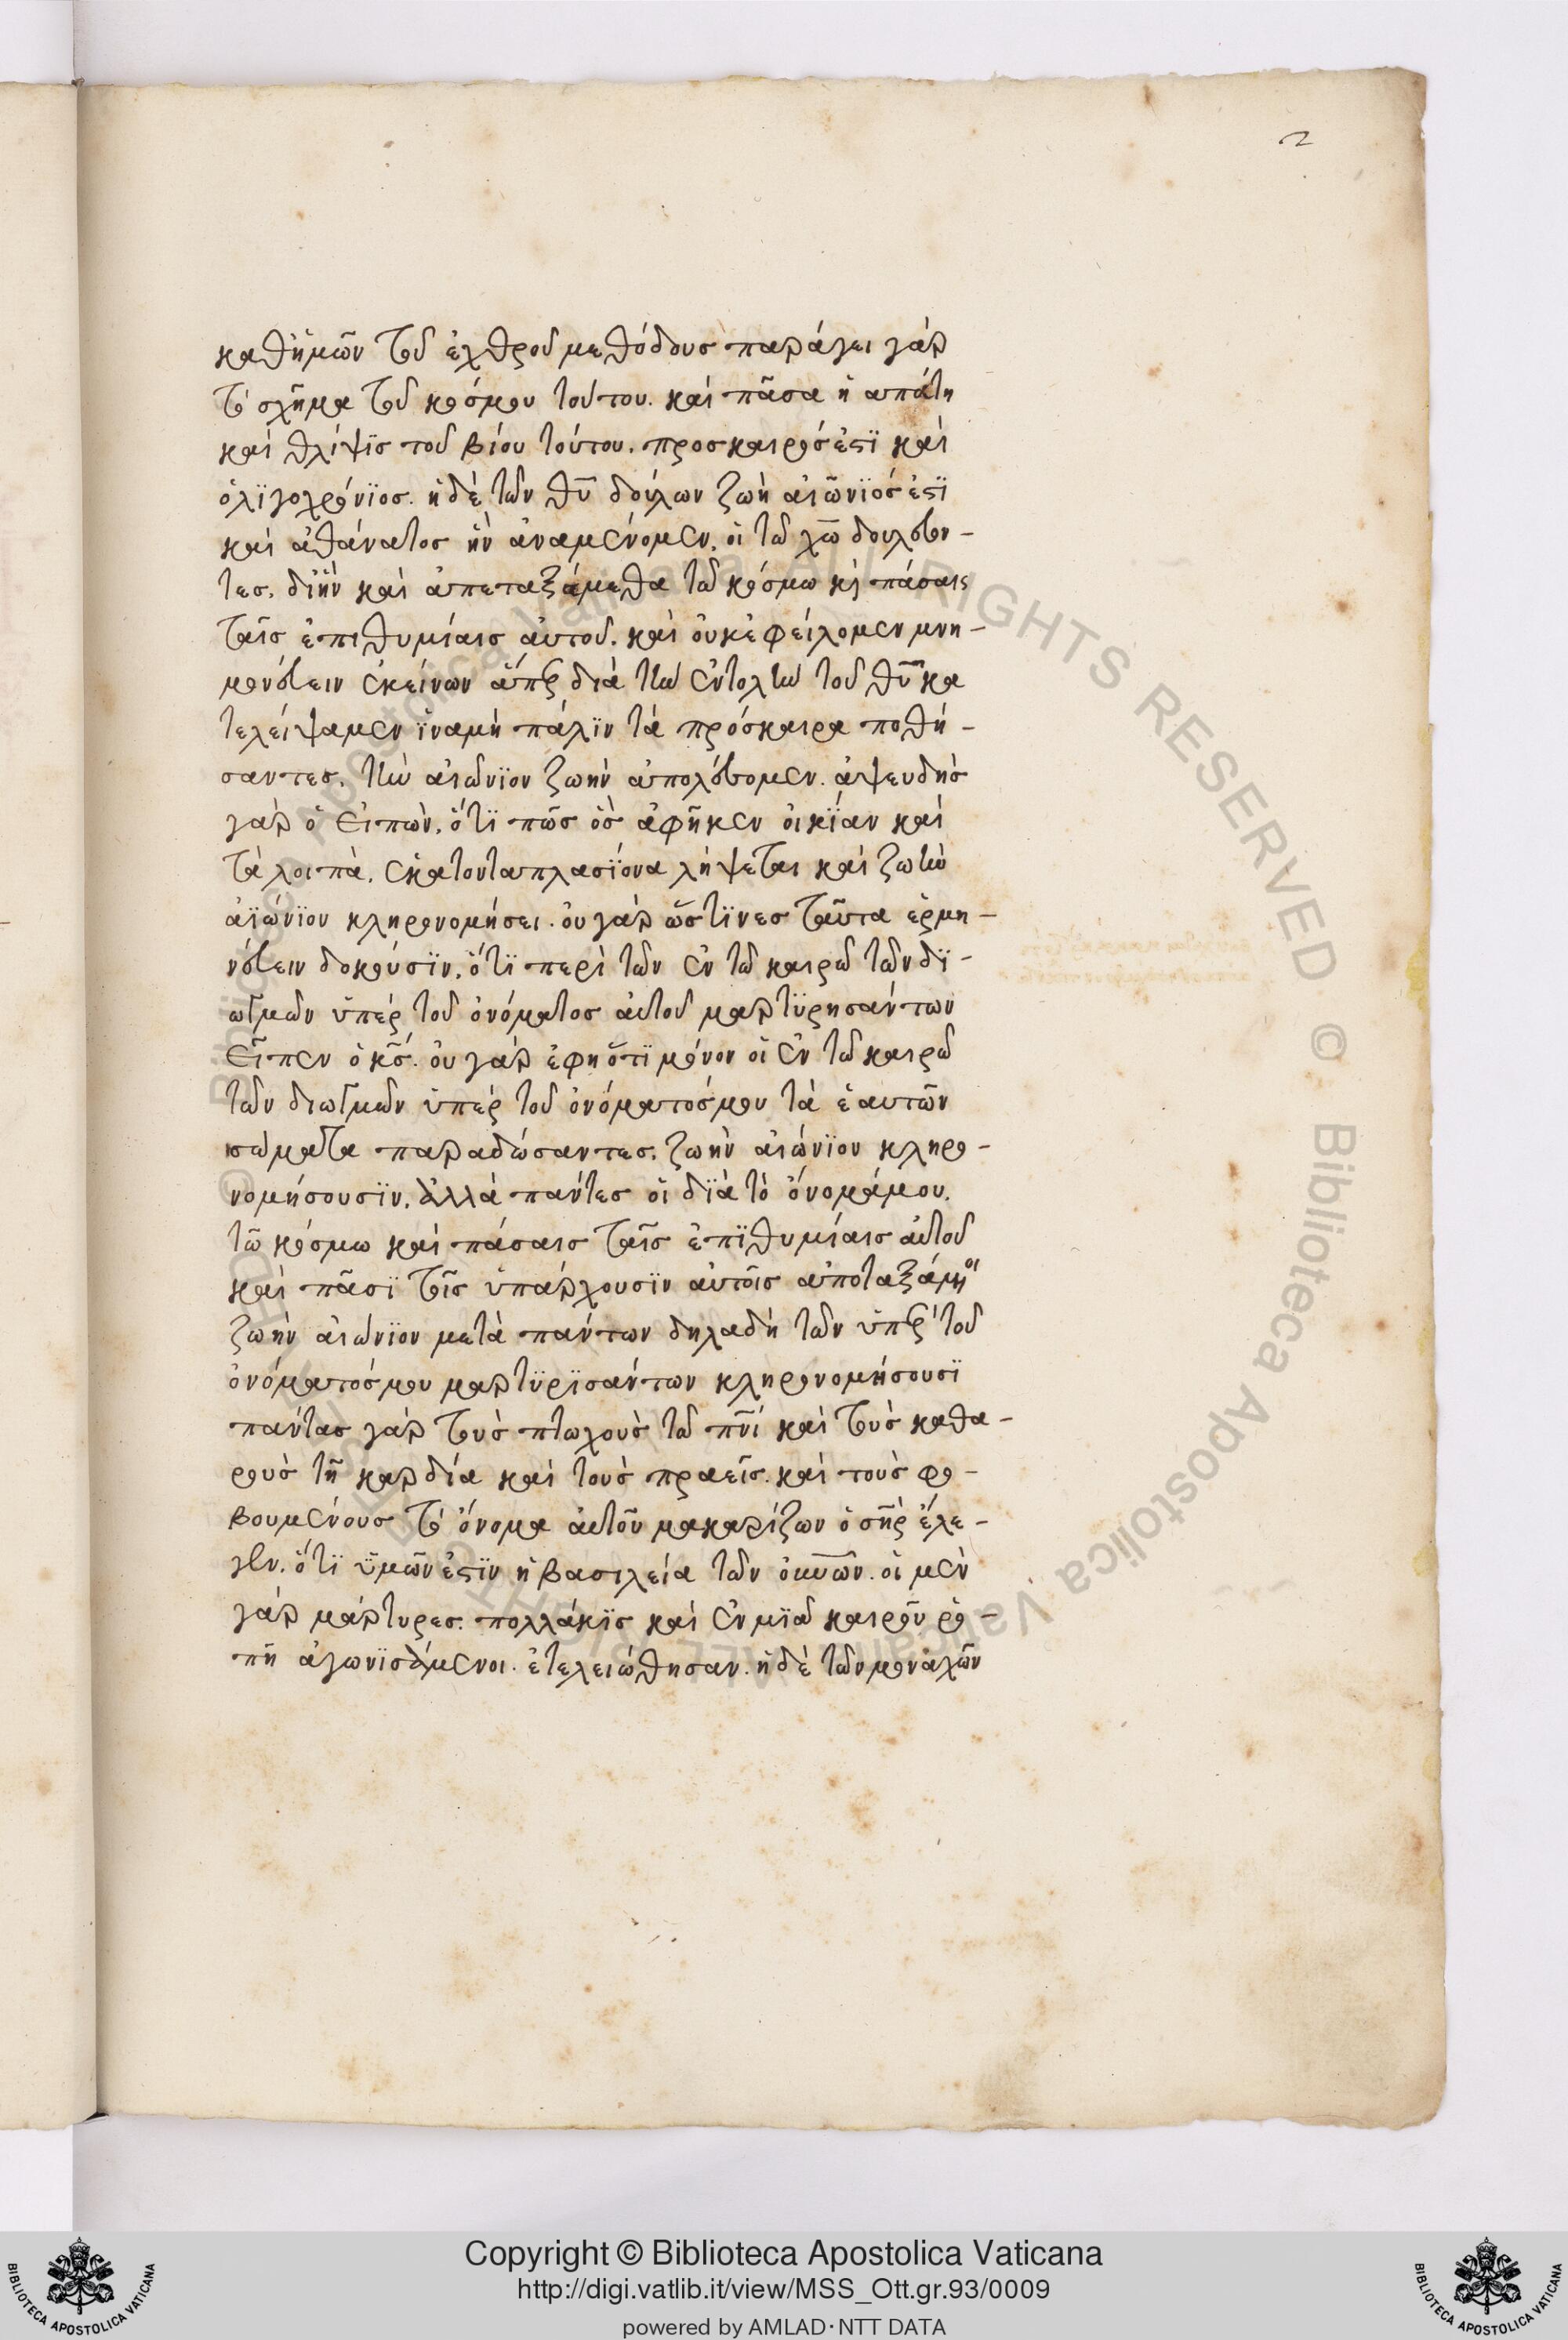 2
καθἡμῶν τοῦ ἐχθροῦ μεθόδους παράγει γάρ
τὸ σχῆμα τοῦ κόσμου τούτου. καὶ πᾶσα ἡ απάτη
καὶ θλίψϊς τοῦ βίου τούτου. προσκαιρόσἐστϊ καὶ
ὀλϊγοχρόνϊος. ἡδὲ τῶν θῦ δούλων ζωὴ αἰῶνϊόσἐστϊ
καὶ ἀθάνατος ἣν ἀναμένομεν. οἱ τῶ χῶ δουλεύον-
τες. διἣν καὶ ἀπεταξάμεθα τῶ κόσμω κὶ πάσαις
ταῖς ἐπιθυμίαις ἀυτοῦ. καὶ ὀυκἐφείλομεν μνη-
μονεύειν ἐκείνων ἅπερ διὰ τὴν ἐντολὴν τοῦ θῦ κα
τελείψαμεν ἵναμὴ πάλϊν τὰ πρόσκαιρα ποθή-
σαντες. τὴν ἀιώνϊον ζωὴν ἀπολέσομεν. ἀψευδὴς
γὰρ ὁ εἰπὼν. ὅτϊ πῶς ὃς ἀφῆκεν ὀικΐαν καὶ
τὰ λοιπὰ. ἑκατονταπλασΐονα λήψεται καὶ ζωὴν
ἀϊώνϊον κληρονομήσει. ὀυ γὰρ ὥστϊνες ταῦτα ἑρμη-
νεύειν δοκούσϊν. ὅτϊ περὶ τῶν ἐν τῶ καιρῶ τῶν δϊ-
ωγμῶν ὑπὲρ τοῦ ὀνόματος ἀυτοῦ μαρτϋρησάντων
εἶπεν ὁ κς. ὀυ γὰρ ἐφη ὅτϊ μόνον οἱ ἐν τῶ καιρῶ
τῶν διωγμῶν ὑπὲρ τοῦ ὀνόματόσμου τὰ ἑαυτῶν
σώματα παραδώσαντες. ζωὴν ἀιώνϊον κληρο-
νομήσουσϊν. ἀλλὰ πάντες οἱ δϊὰ τὸ ὄνομάμου.
τῶ κόσμω καὶ πάσαις ταῖς ἐπϊθυμίαις ἀυτοῦ
καὶ πᾶσϊ τοῖς ὑπάρχουσϊν ἀυτοῖς ἀποταξάμηοι
ζωὴν ἀιώνϊον μετὰ πάντων δηλαδὴ τῶν ὑπὲρ τοῦ
ὀνόματόσμου μαρτϋρϊσάντων κληρονομήσουσϊ
πάντας γὰρ τοὺς πτωχοὺς τῶ πνΐ καὶ τοὺς καθα-
ροὺς τῆ καρδία καὶ τοὺς πραεῖς. καὶ τοὺς φο-
βουμένους τὸ ὄνομα ἀυτοῦ μακαρίζων ὁ σὴρ ἔλε-
γεν. ὅτϊ ὑμῶνἐστϊν ἡ βασιλεία τῶν ὀυνῶν. οἱ μὲν
γὰρ μάρτυρες. πολλάκϊς καὶ ἐν μϊᾶ καιροῦ ῥο-
πῆ ἀγωνϊσάμενοι. ἐτελειώθησαν. ἡδὲ τῶν μοναχῶν
DIGITAL
ALL RIGHTS RESERVED © Biblioteca Apostolica Vaticana
Copyright © Biblioteca Apostolica Vaticana
http://digi.vatlib.it/view/MSS_Ott.gr.93/0009
powered by AMLAD·NTT DATA
BIBLIOTECA APOSTOLICA VATICANA
BIBLIOTECA APOSTOLICA VATICANA